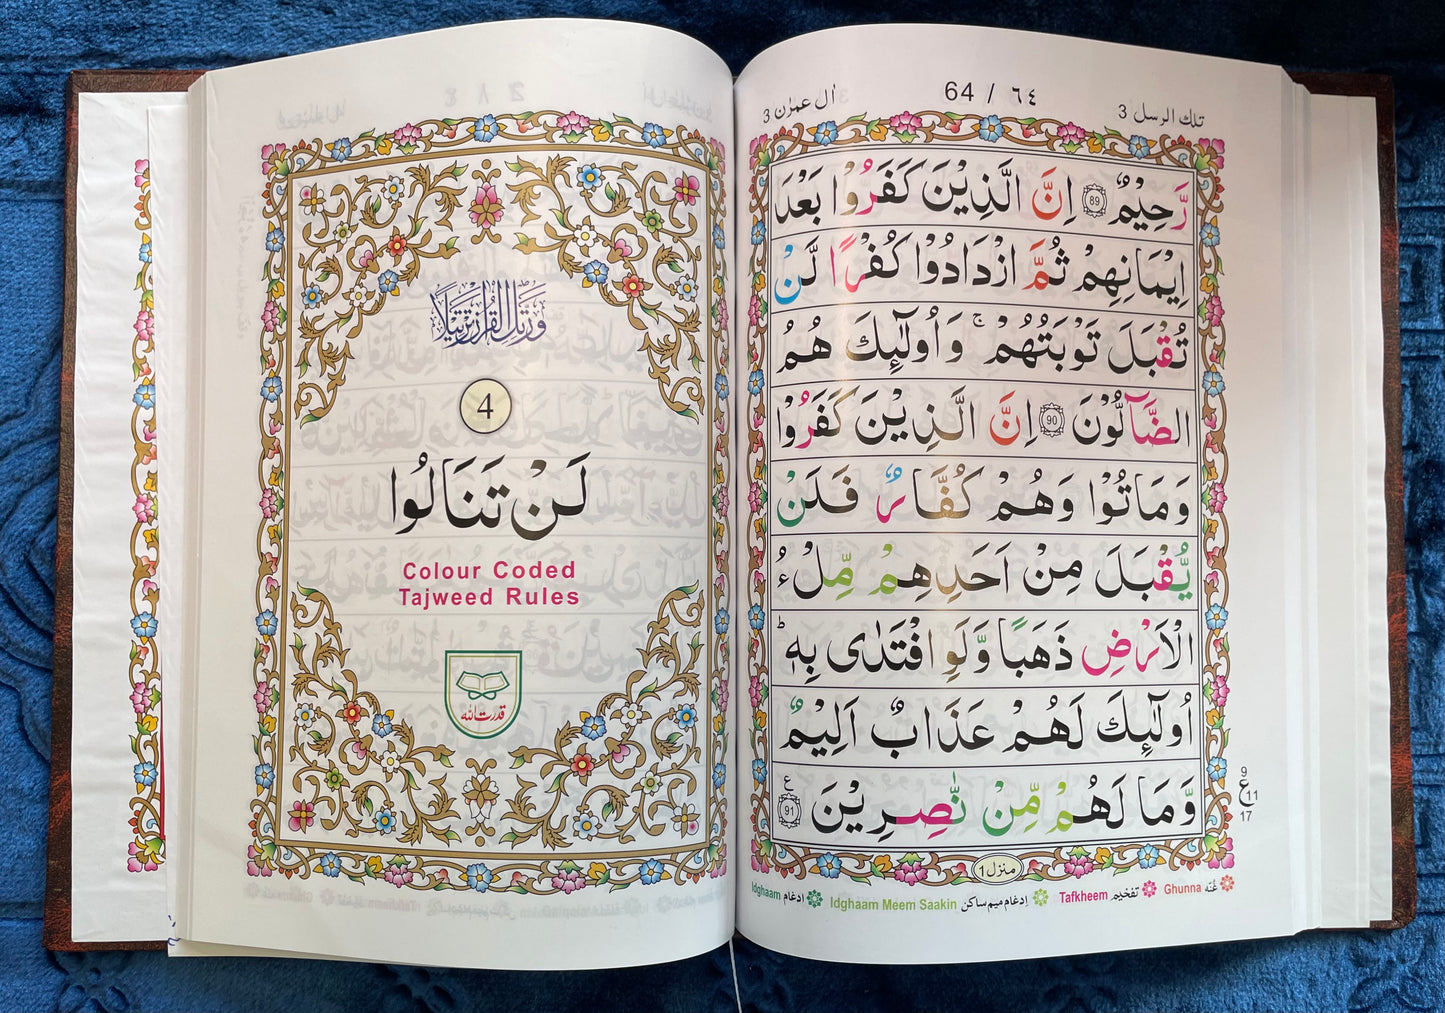 وَرَتِّلِ الْقُرْاٰنَ تَرْتِيْلًا
4
لَنْ تَنَالُوا
Colour Coded
Tajweed Rules
قدرت اللہ
اٰل عمرٰن 3
64 / ٦٤
تلك الرسل 3
رَّحِيْمٌ ۝89 اِنَّ الَّذِيْنَ كَفَرُوْا بَعْدَ
اِيْمَانِهِمْ ثُمَّ ازْدَادُوْا كُفْرًا لَّنْ
تُقْبَلَ تَوْبَتُهُمْ ۚ وَاُولٰٓئِكَ هُمُ
الضَّآلُّوْنَ ۝90 اِنَّ الَّذِيْنَ كَفَرُوْا
وَمَاتُوْا وَهُمْ كُفَّارٌ فَلَنْ
يُّقْبَلَ مِنْ اَحَدِهِمْ مِّلْءُ
الْاَرْضِ ذَهَبًا وَّلَوِ افْتَدٰى بِهٖ ؕ
اُولٰٓئِكَ لَهُمْ عَذَابٌ اَلِيْمٌ
وَّمَا لَهُمْ مِّنْ نّٰصِرِيْنَ ۝91 ع
9
ع 11
17
منزل 1
Idghaam ادغام
Idghaam Meem Saakin اِدغام میم ساکن
Tafkheem تفخیم
Ghunna غُنّه